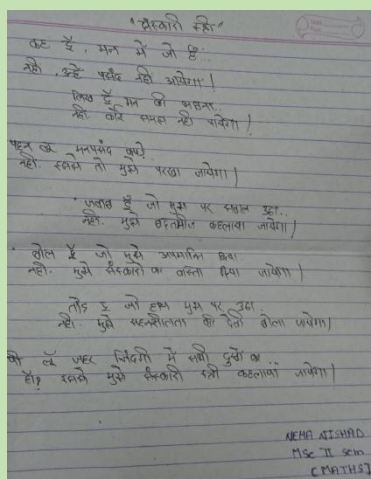 "संस्कारी स्त्री"
कह दूँ, मन में जो है..
नही, उन्हें पसंद नही आयेगा!
लिख दूँ मन की भावना
नही कोई समझ नही पायेगा!
पहन लूँ मनपसंद कपड़े
नही, इससे तो मुझे परखा जायेगा।
जवाब दूँ जो मुझ पर सवाल उठा..
नही, मुझे बदतमीज कहलाया जायेगा।
बोल दूँ जो मुझे अपमानित किया
नही, मुझे संस्कारों का वास्ता दिया जायेगा।
तोड़ दूँ जो हाथ मुझ पर उठा
नही, मुझे सहनशीलता की देवी बोला जायेगा।
पी लूँ जहर जिंदगी में सभी दुखों का...
हाँ? इससे मुझे संस्कारी स्त्री कहलाया जायेगा।
NEHA NISHAD
MSc II Sem
[MATHS]